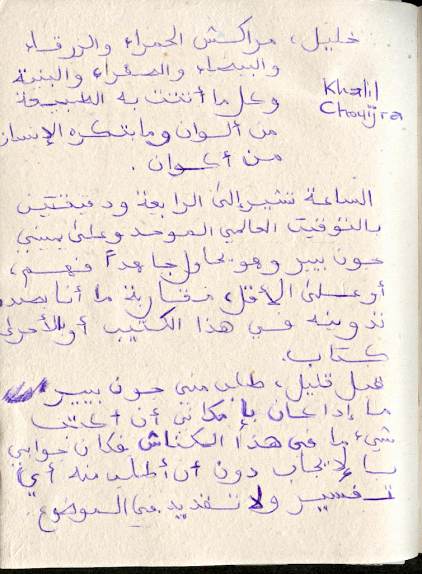 خليل، مراكش الحمراء والزرقاء
والبيضاء والصفراء والبنية
وكل ما أتت به الطبيعة
من ألوان وما يبتكره الإنسان
من أكوان.
Khalil
Chouijra
الساعة تشير إلى الرابعة ودقيقتين
بالتوقيت العالمي الموحد وعلى يميني
جون بيير وهو يحاول جاهداً فهم،
أو على الأقل، مقاربة ما أنا بصدد
تدوينه في هذا الكتيب أو بالأحرى
كتاب.
قبل قليل، طلب مني جون بيير
ما إذا كان بإمكاني أن أكتب
شيء ما في هذا الكناش فكان جوابي
بالإيجاب دون أن أطلب منه أي
تفسير ولا في الموضوع